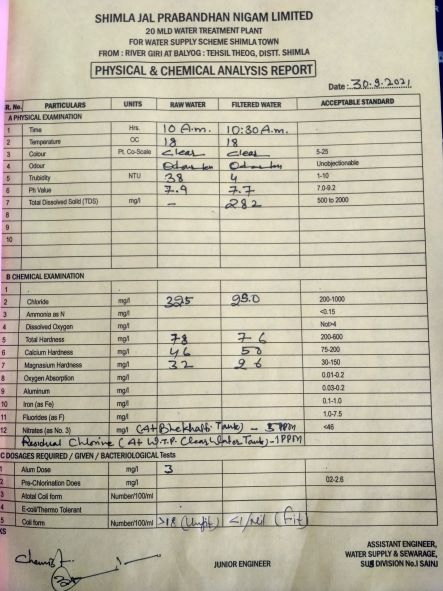 SHIMLA JAL PRABANDHAN NIGAM LIMITED
20 MLD WATER TREATMENT PLANT
FOR WATER SUPPLY SCHEME SHIMLA TOWN
FROM : RIVER GIRI AT BALYOG : TEHSIL THEOG, DISTT. SHIMLA
PHYSICAL & CHEMICAL ANALYSIS REPORT
Date: 30.9.2021
R. No. PARTICULARS UNITS RAW WATER FILTERED WATER ACCEPTABLE STANDARD
A PHYSICAL EXAMINATION
1 Time Hrs. 10 A.m. 10:30 A.m.
2 Temperature OC 18 18
3 Colour Pt. Co-Scale Clear Clear 5-25
4 Odour Unobjectionable
5 Trubidity NTU 38 4 1-10
6 Ph Value 7.9 7.7 7.0-9.2
7 Total Dissolved Solid (TDS) mg/l - 282 500 to 2000
8
9
10
B CHEMICAL EXAMINATION
1
2 Chloride mg/l 200-1000
3 Ammonia as N mg/l <0.15
4 Dissolved Oxygen mg/l Not>4
5 Total Hardness mg/l 78 76 200-600
6 Calcium Hardness mg/l 46 50 75-200
7 Magnasium Hardness mg/l 32 26 30-150
8 Oxygen Absorption mg/l 0.01-0.2
9 Aluminum mg/l 0.03-0.2
10 Iron (as Fe) mg/l 0.1-1.0
11 Fluorides (as F) mg/l 1.0-7.5
12 Nitrates (as No. 3) mg/l (At Tank) - PPM <46
Residual Chlorine (At W.T.P. Clear Water Tank) - 1 PPM
C DOSAGES REQUIRED / GIVEN / BACTERIOLOGICAL Tests
1 Alum Dose mg/l 3
2 Pre-Chlorination Does mg/l 02-2.6
3 Atotal Coli form Number/100/ml
4 E-coli/Thermo Tolerant
5 Coli form Number/100/ml >18 (Unfit) <1/ml (Fit)
KS
Chemist
JUNIOR ENGINEER
ASSISTANT ENGINEER,
WATER SUPPLY & SEWARAGE,
SUB DIVISION No.I SAINJ